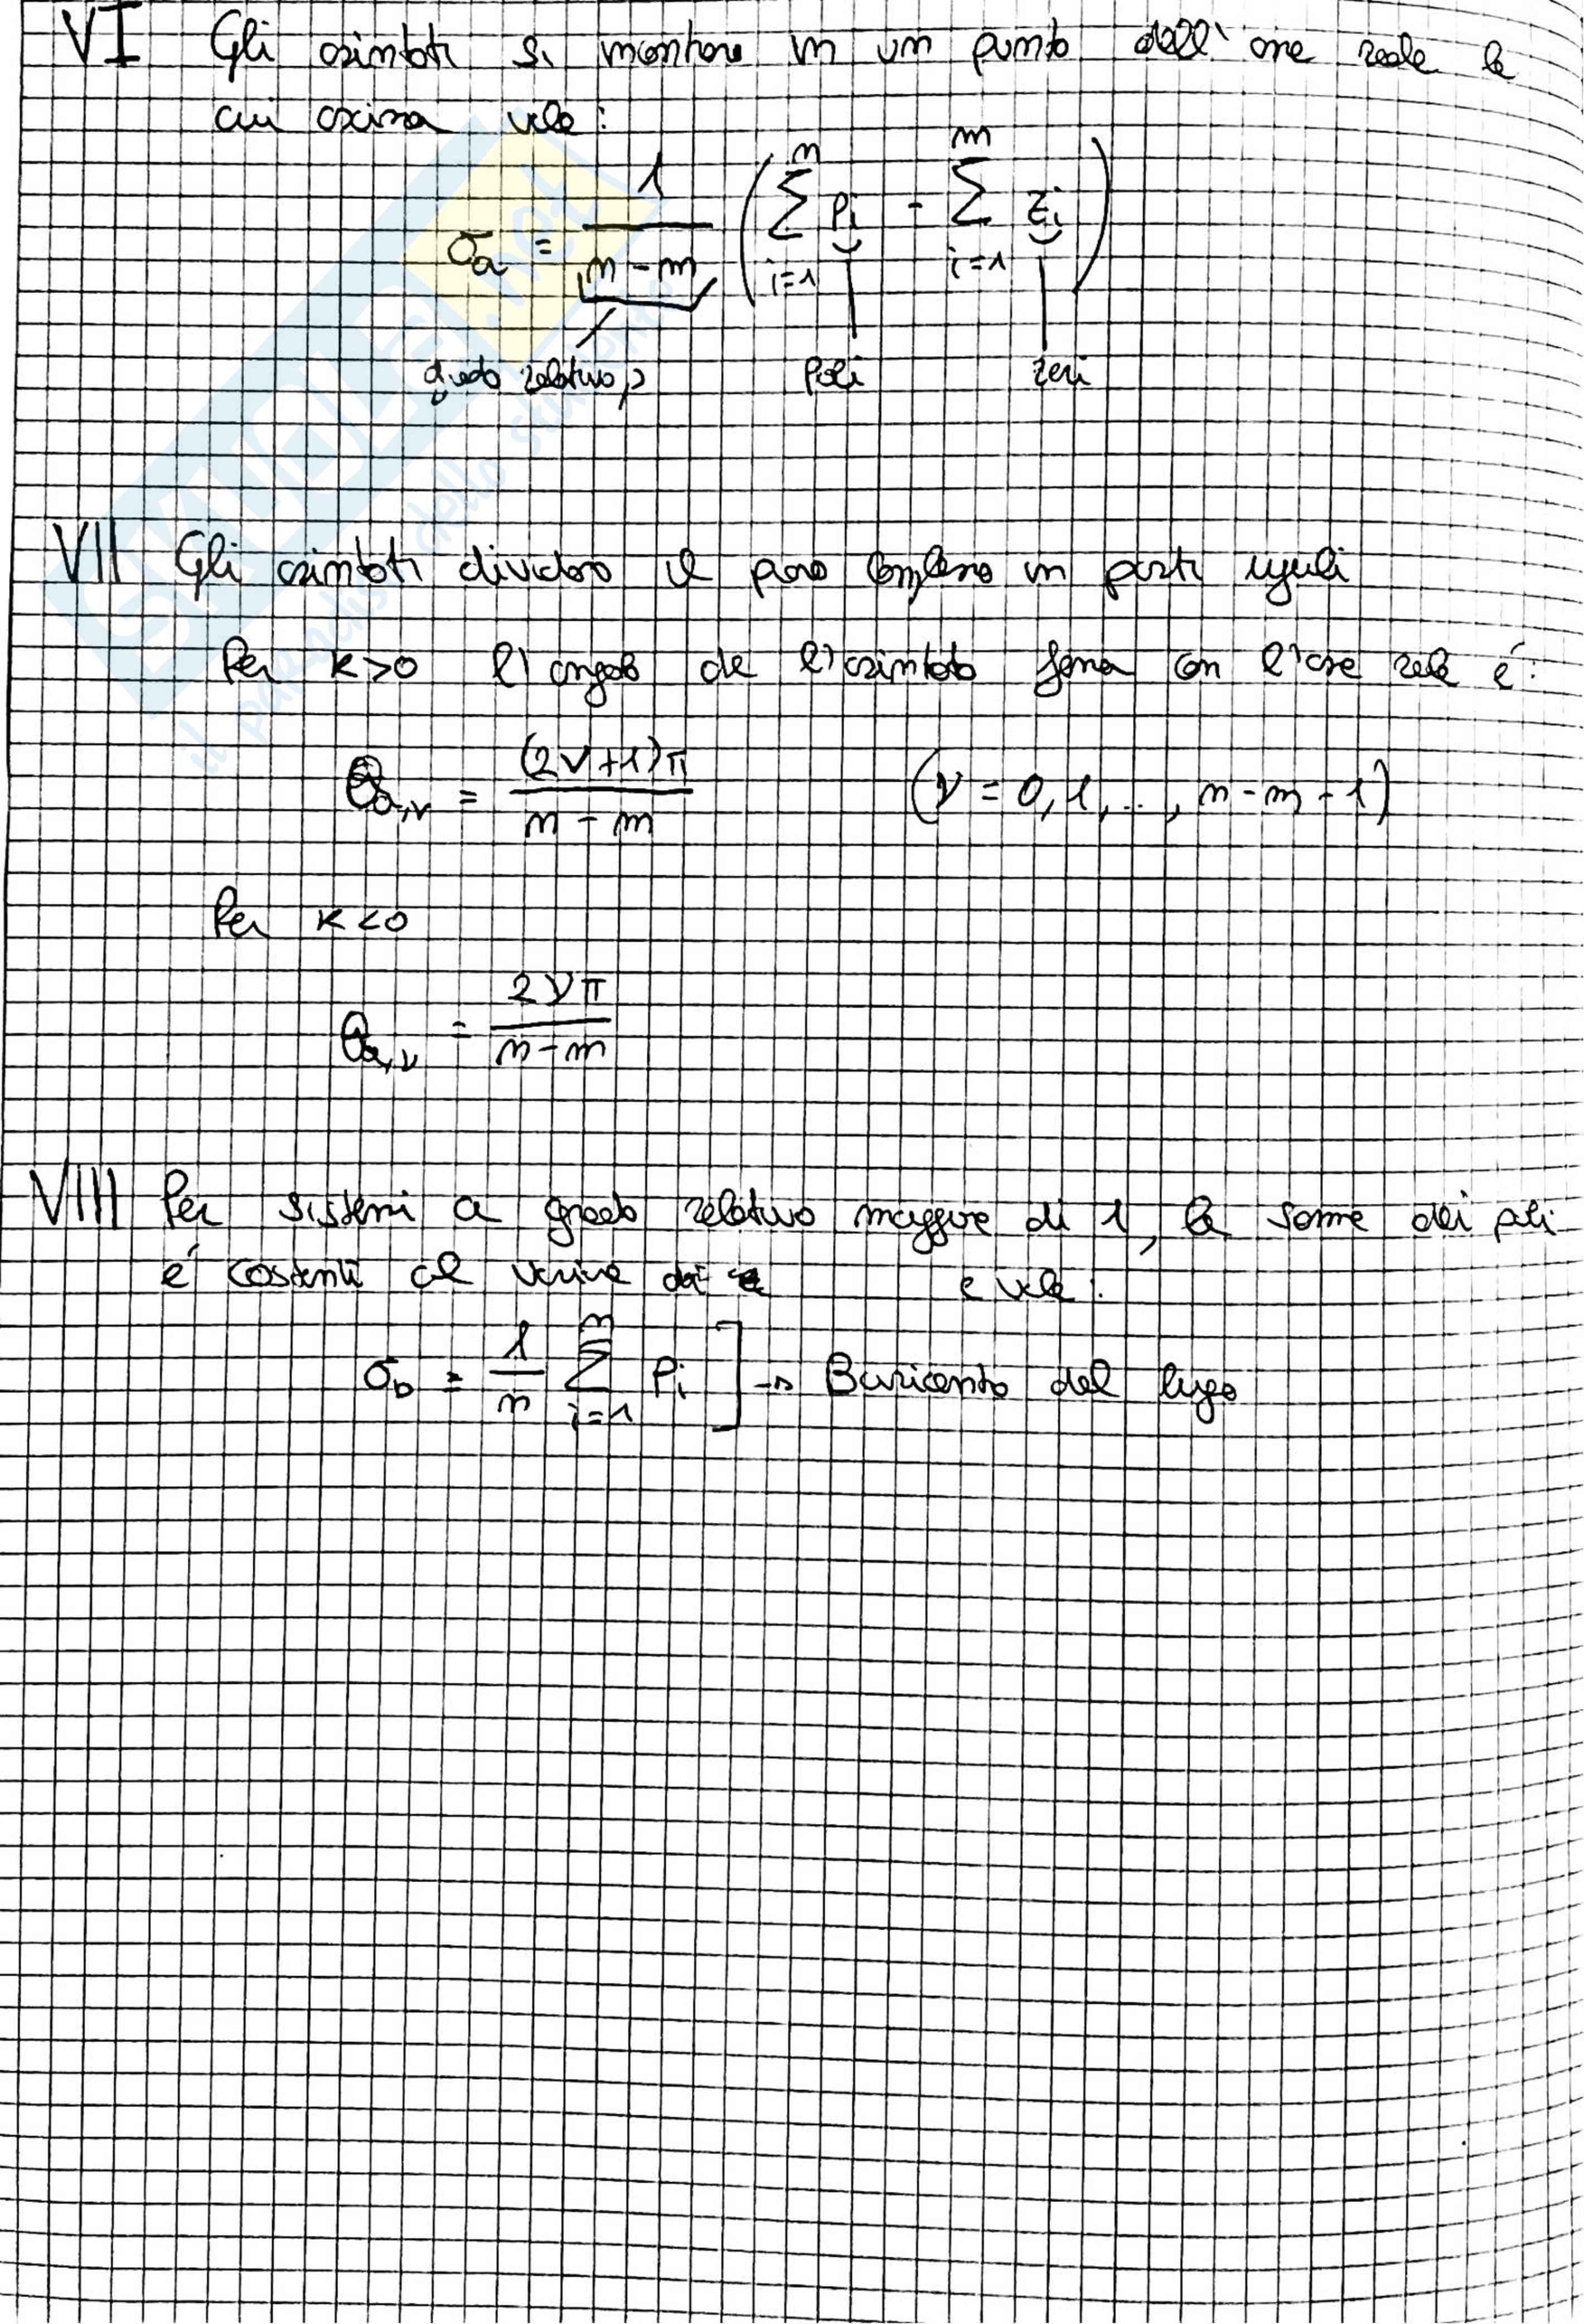 VI Gli asintoti si incontrano in un punto dell'asse reale la
cui ascissa vale:
σa = 1/(n-m) ( Σ(i=1..n) pi - Σ(i=1..m) zi )
grado relativo ρ poli zeri
VII Gli asintoti dividono il piano complesso in parti uguali
Per K>0 l'angolo che l'asintoto forma con l'asse reale è:
θa,ν = (2ν+1)π/(n-m) (ν = 0,1,..., n-m-1)
Per K<0
θa,ν = 2νπ/(n-m)
VIII Per sistemi a grado relativo maggiore di 1, la somma dei poli
é costante al variare di e vale:
σb = 1/n Σ(i=1..n) Pi ] → Baricentro del luogo
SKUOLA.net
il paradiso dello studente